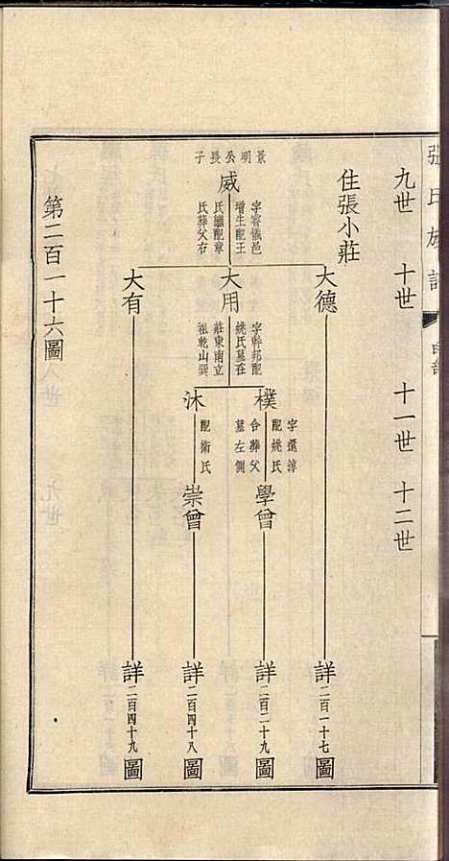 張氏族譜
九世 十世 十一世 十二世
住張小莊
景明公長子
威
字睿儀邑
增生配王
氏繼配章
氏葬父右
大德
大用
大有
字幹邦配
姚氏墓在
莊東南立
祖乾山巽
樸
沐
字還淳
配姚氏
合葬父
墓左側
配術氏
學曾
崇曾
詳二百一十七圖
詳二百二十九圖
詳二百四十八圖
詳二百四十九圖
第二百一十六圖